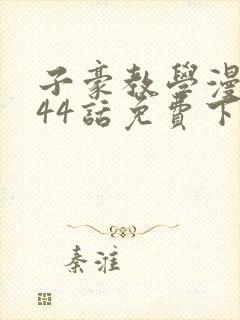 子豪教學漫
44話免費下
秦淮